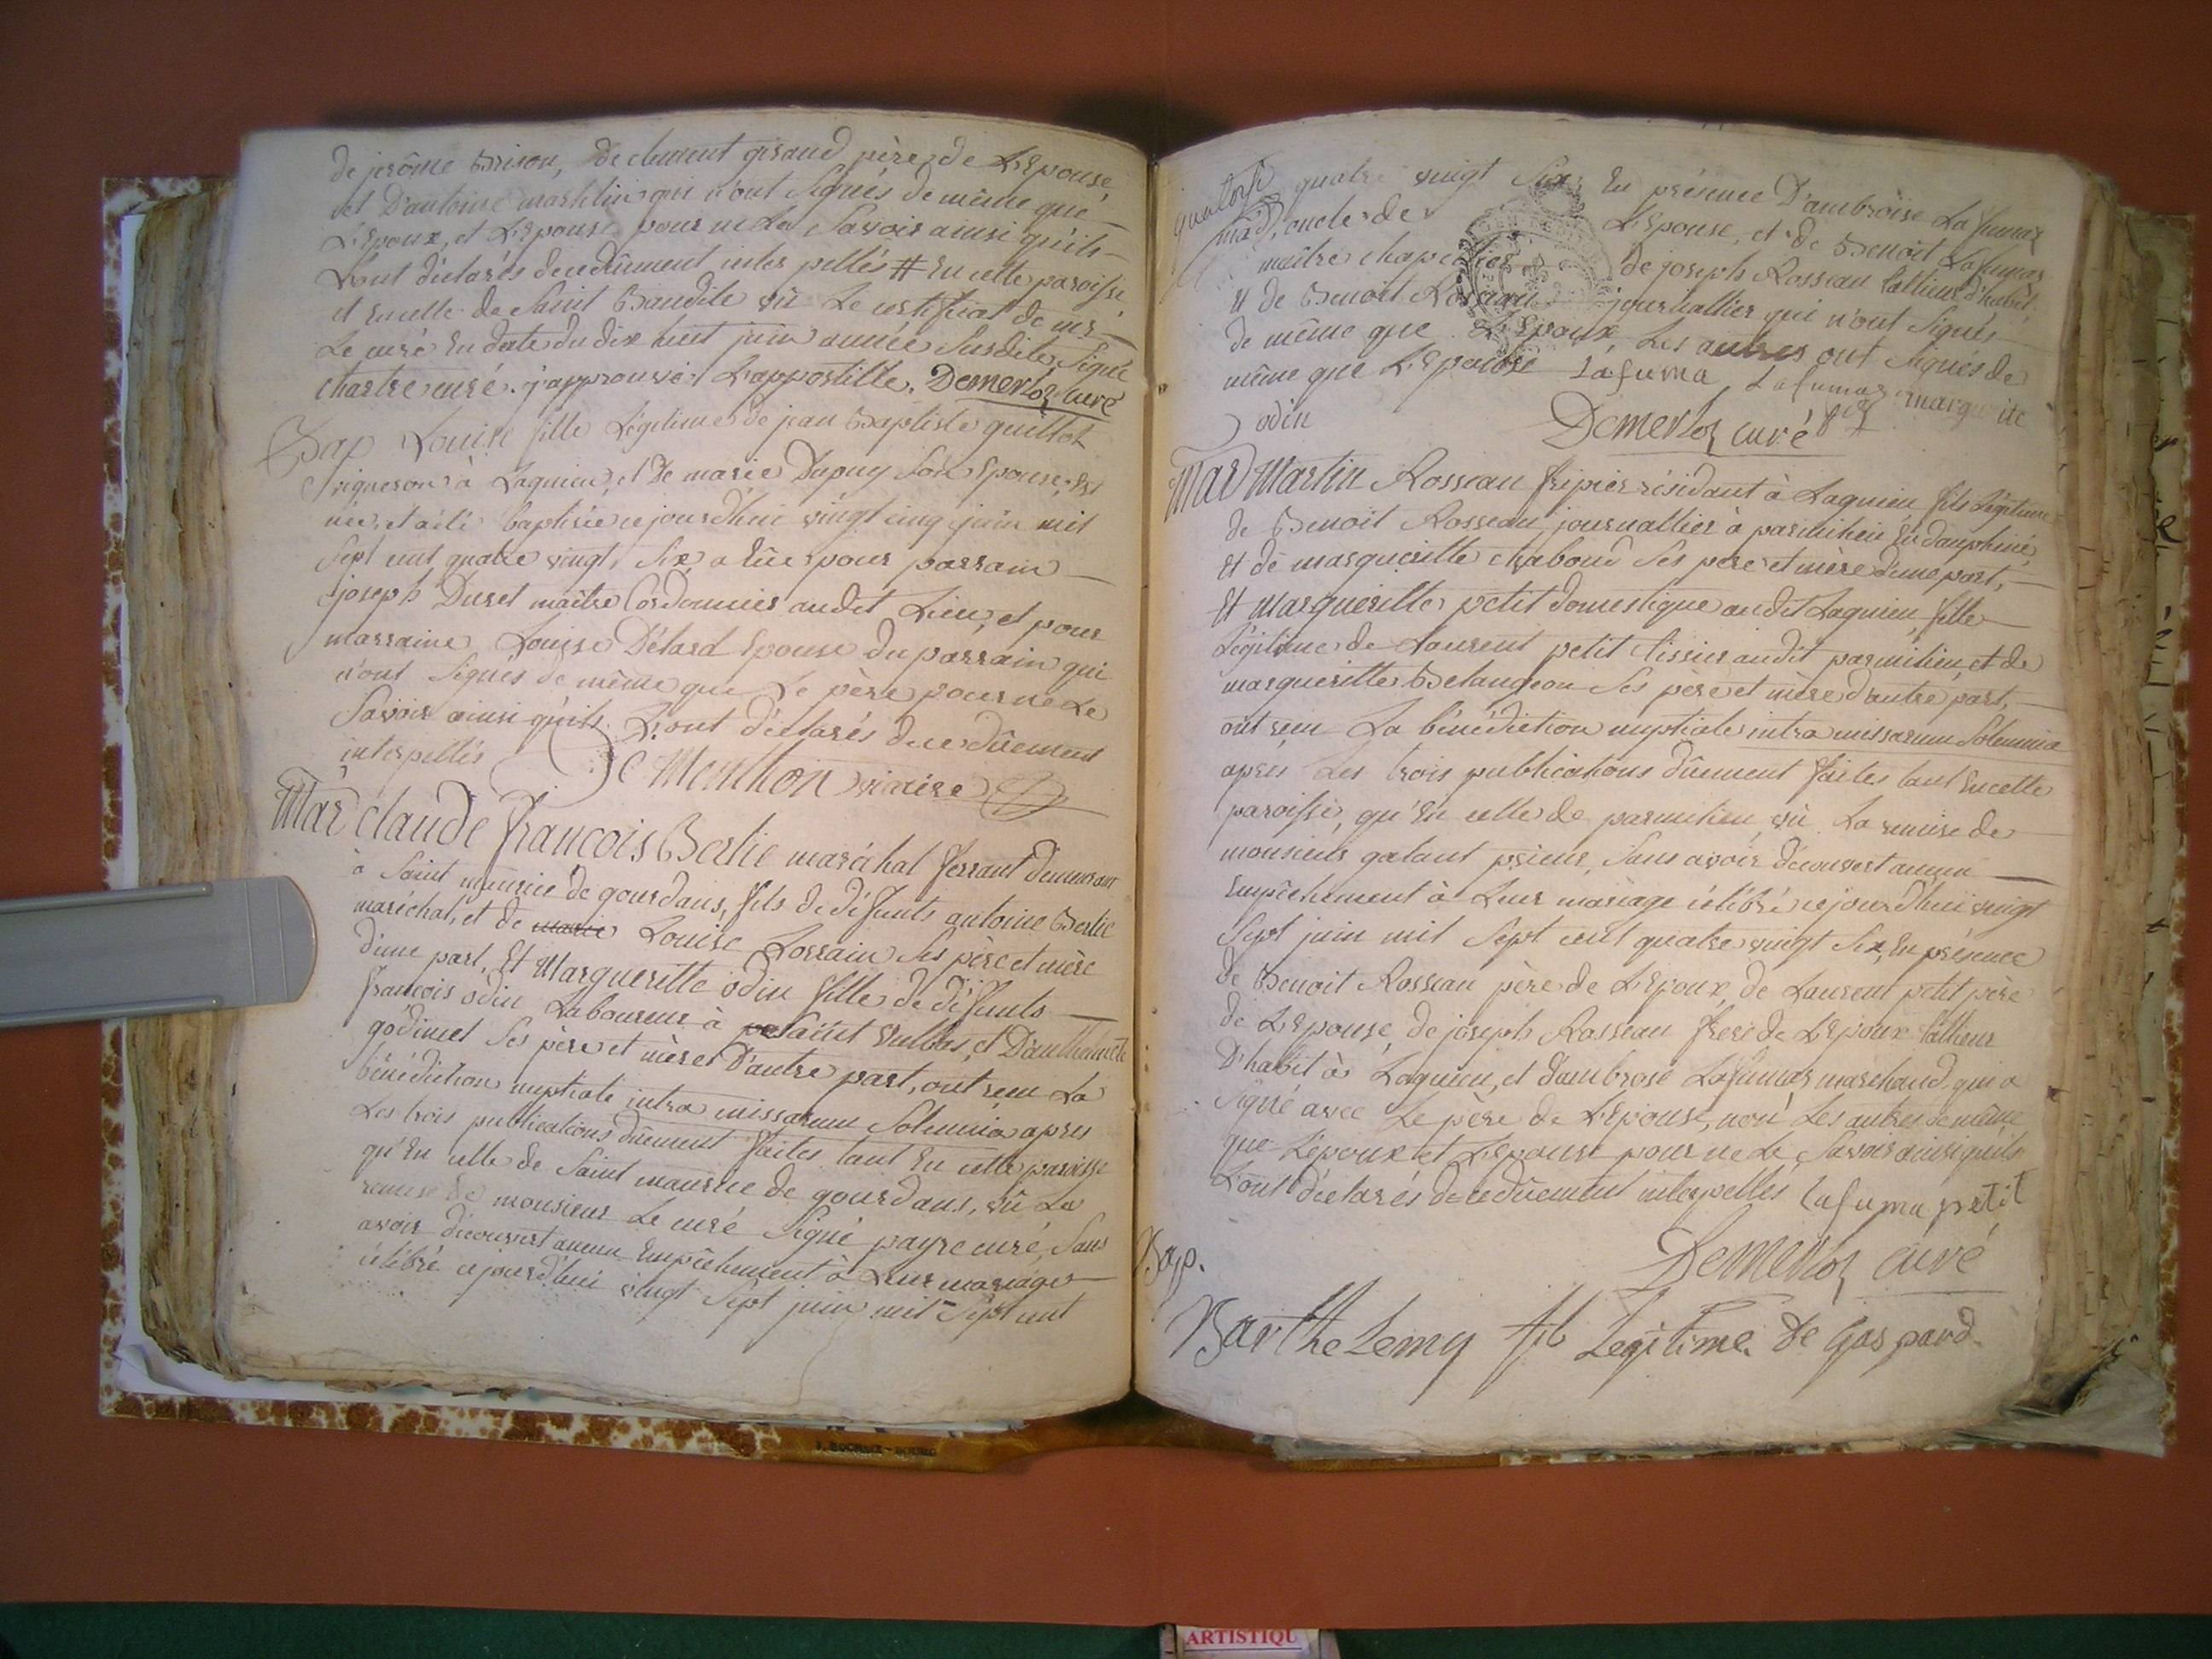 de jerôme Brison, de clement giraud père de L'Epouse,
et D'antoine marhlin qui n'ont signés de même que
L'Epoux, et L'Epouse pour ne Le Savoir ainsi qu'ils
L'ont déclarés de ce dûement interpellés # En cette paroisse
et En celle de Saint Baudile vû Le certificat de mr
Le curé En date du dix huit juin année Susdite, Signé
chartre curé. j'approuve L'appostille. Demerloz curé
Bap Louise fille Légitime de jean Baptiste guillot
vigneron à Lagnieu, et de marie Dupuy Son Epouse Est
née, et a été baptisée cejourd'hui vingt cinq juin mil
Sept cent quatre vingt Six, a Eüe pour parrain
joseph Duret maître Cordonnier audit Lieu, et pour
marraine Louise Détard Epouse du parrain qui
n'ont Signés de même que Le père pour ne Le
Savoir ainsi qu'ils L'ont déclarés de ce dûement
interpellés De Menthon vicaire
Mar claude François Berlie maréchal ferrant demeurant
à Saint maurice de gourdans, fils de défunts antoine Berlie
maréchal, et de marie Louise Lorrain Ses père et mère
d'une part, Et Margueritte odin fille de défunts
François odin Laboureur à Saint Vulbas, et D'anthelmette
godinet Ses père et mère D'autre part, ont reçu La
bénédiction nuptiale intra missarum Solemnia après
Les trois publications dûement faites tant En cette paroisse
qu'En celle de Saint maurice de gourdans, vû La
remise de monsieur Le curé Signé payre curé, Sans
avoir découvert aucun Empêchement à Leur mariage
célébré cejourd'hui vingt Sept juin mil Sept cent
quatre vingt Six, En présence D'ambroise Lafumaz
md, oncle de L'Epouse, et de Benoit Lafumaz
maître chapelier, de joseph Rosseau tailleur d'habit,
et de Benoit Rosseau journallier qui n'ont Signés
de même que L'Epoux, Les autres ont Signés de
même que L'Epouse Lafuma Lafumaz marguite
odin
Demerloz curé
Mar Martin Rosseau fripier résidant à Lagnieu fils Légitime
de Benoit Rosseau journallier à parmilieu En dauphiné,
et de margueritte chaboud Ses père et mère d'une part,
Et Margueritte petit domestique audit Lagnieu, fille
Légitime de Laurent petit tissier audit parmilieu, et de
margueritte Belangeon Ses père et mère d'autre part,
ont reçu La bénédiction nuptiale intra missarum Solemnia
après Les trois publications dûement faites tant En cette
paroisse, qu'En celle de parmilieu, vû La remise de
monsieur galant prieur, Sans avoir découvert aucun
Empêchement à Leur mariage célébré cejourd'hui vingt
Sept juin mil Sept cent quatre vingt Six, En présence
de Benoit Rosseau père de L'Epoux, de Laurent petit père
de L'Epouse, de joseph Rosseau frere de L'Epoux tailleur
D'habit à Lagnieu, et d'ambroise Lafumaz marchand qui a
Signé avec Le père de L'Epouse, non Les autres de même
que L'époux et L'Epouse pour ne Le Savoir ainsi qu'ils
L'ont déclarés de ce dûement interpellés Lafuma petit
Demerloz curé
Bap.
Barthelemy fils Legitime de Gaspard
ARTISTIQU